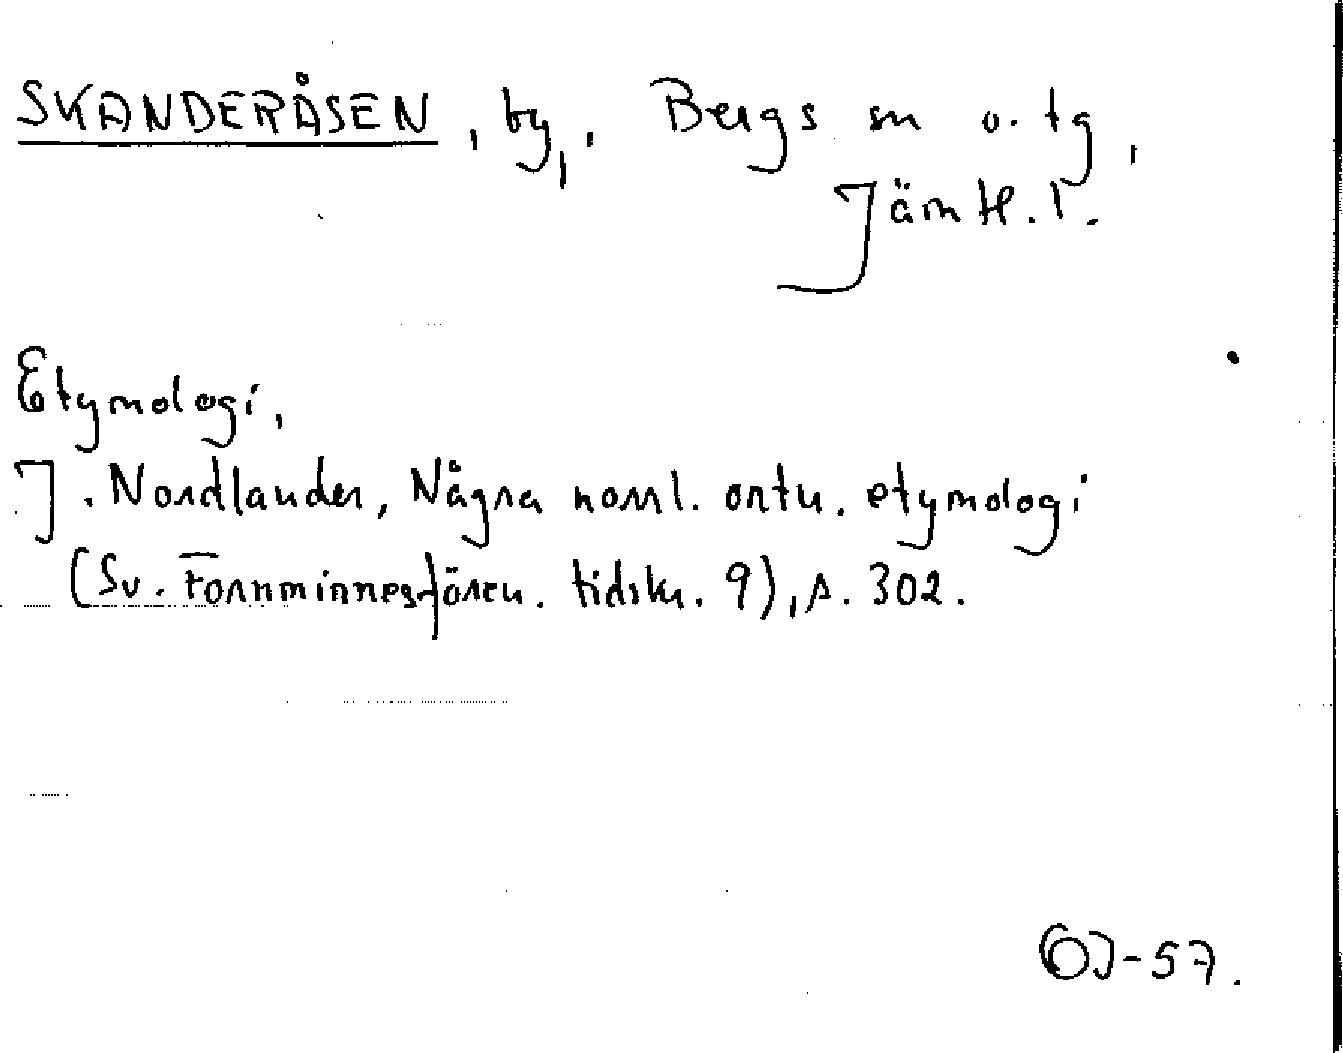 SKANDERÅSEN, by, Bergs sn o. tg,
Jämtl. l.
Etymologi,
J. Nordlander, Några norrl. ortn. etymologi
(Sv. Fornminnesfören. tidskr. 9), s. 302.
OJ-57.